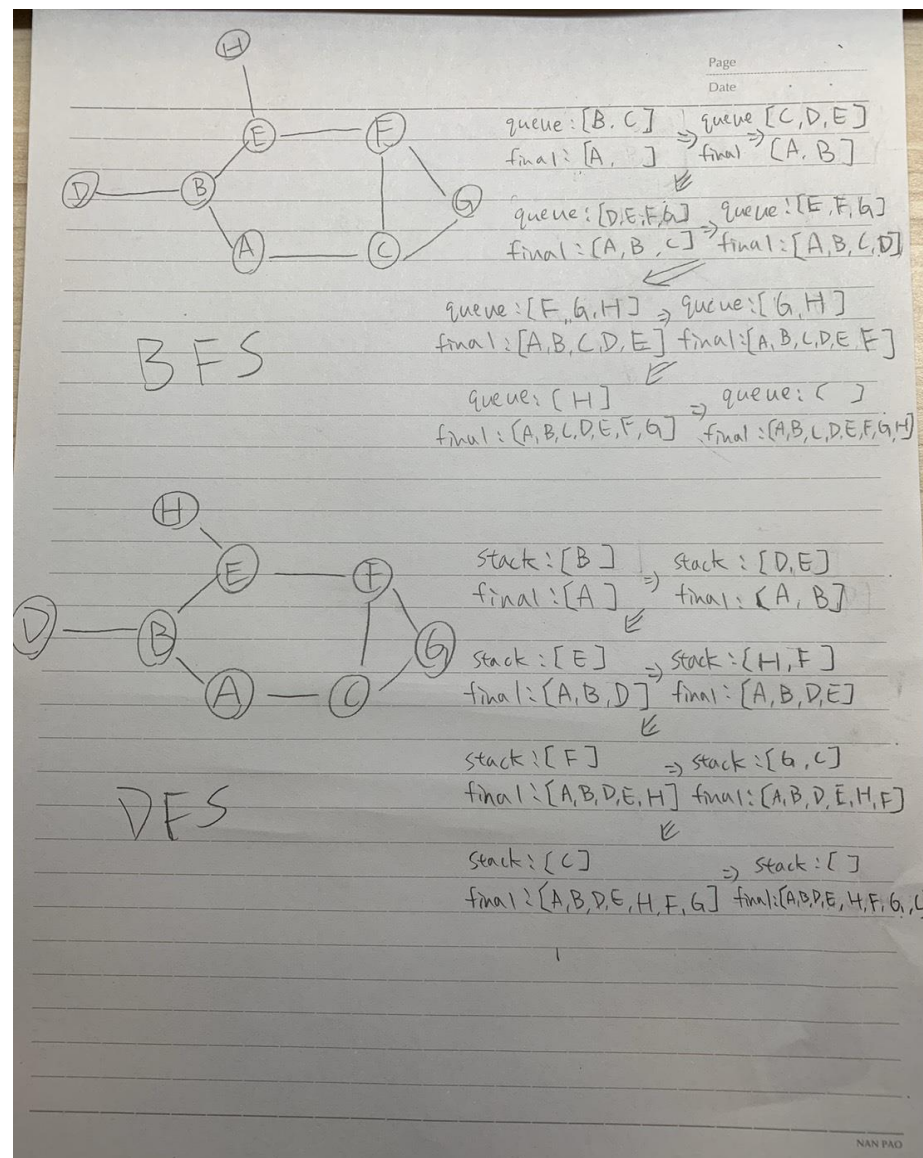 Page
Date
H
E F
D B G
A C
queue: [B, C] ⇒ queue [C, D, E]
final: [A, ] final ⇒ [A, B]
⇓
queue: [D, E, F, G] ⇒ queue: [E, F, G]
final: [A, B, C] final: [A, B, C, D]
⇓
queue: [F, G, H] ⇒ queue: [G, H]
final: [A, B, C, D, E] final: [A, B, C, D, E, F]
BFS
⇓
queue: [H] ⇒ queue: [ ]
final: [A, B, C, D, E, F, G] final: [A, B, C, D, E, F, G, H]
H
E F
D B G
A C
stack: [B] ⇒ stack: [D, E]
final: [A] final: [A, B]
⇓
stack: [E] ⇒ stack: [H, F]
final: [A, B, D] final: [A, B, D, E]
⇓
stack: [F] ⇒ stack: [G, C]
final: [A, B, D, E, H] final: [A, B, D, E, H, F]
DFS
⇓
stack: [C] ⇒ stack: [ ]
final: [A, B, D, E, H, F, G] final: [A, B, D, E, H, F, G, C
NAN PAO